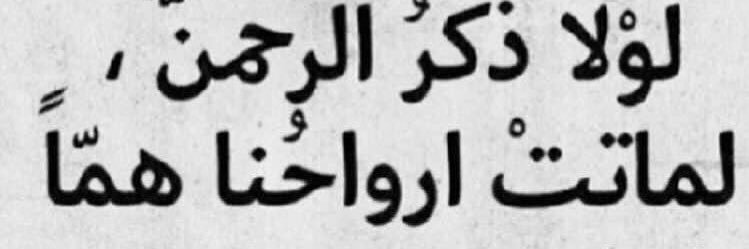 لوْلا ذكرُ الرحمنّ ،
لماتتْ ارواحُنا همّاً